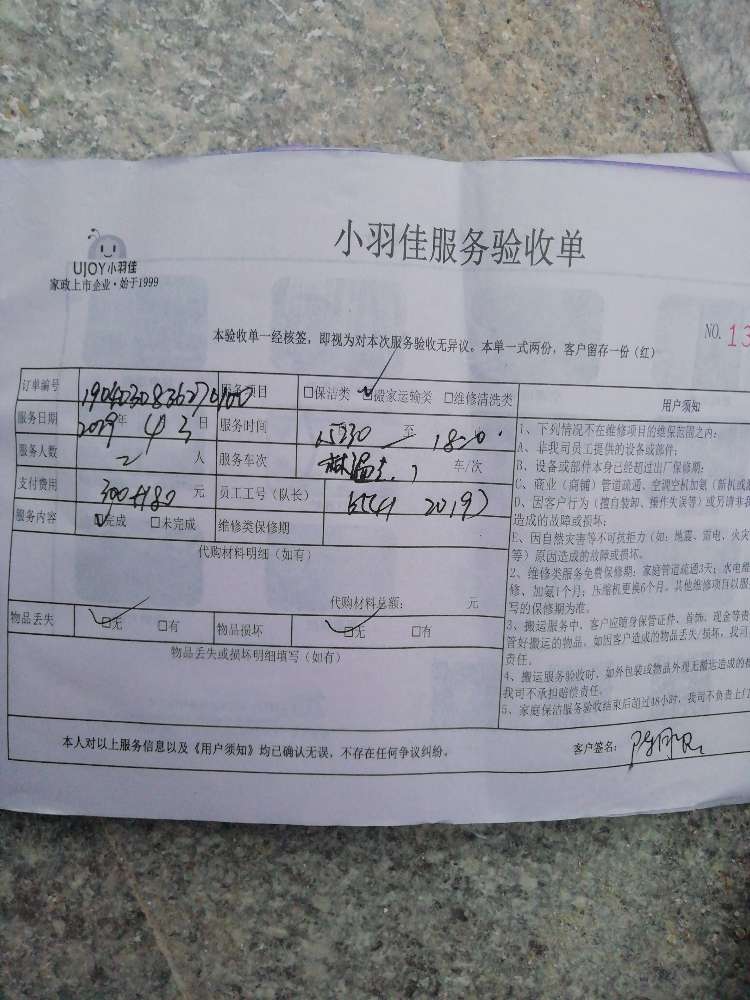 UJOY小羽佳
家政上市企业·始于1999
小羽佳服务验收单
本验收单一经核签,即视为对本次服务验收无异议。本单一式两份,客户留存一份(红)
NO. 13
订单编号 服务项目 □保洁类 □搬家运输类 □维修清洗类
服务日期 2019年 4 3 日 服务时间 15:30 至 18:00
服务人数 2 人 服务车次 车/次
支付费用 300+180 元 员工工号(队长)
服务内容 □完成 □未完成 维修类保修期
代购材料明细(如有)
代购材料总额: 元
物品丢失 □无 □有 物品损坏 □无 □有
物品丢失或损坏明细填写(如有)
本人对以上服务信息以及《用户须知》均已确认无误,不存在任何争议纠纷。
客户签名:
用户须知
1、下列情况不在维修项目的维保范围之内:
A、非我司员工提供的设备或部件;
B、设备或部件本身已经超过出厂保修期;
C、商业(商铺)管道疏通、空调空机加氨(新机或
D、因客户行为(擅自装卸、操作失误等)或另请非我
造成的故障或损坏;
E、因自然灾害等不可抗拒力(如:地震、雷电、火灾
等)原因造成的故障或损坏。
2、维修类服务免费保修期:家庭管道疏通3天;水电维
修、加氨1个月;压缩机更换6个月,其他维修项目以服
写的保修期为准。
3、搬运服务中,客户应随身保管证件、首饰、现金等贵
管好搬运的物品,如因客户造成的物品丢失/损坏,我司
责任。
4、搬运服务验收时,如外包装或物品外观无搬运造成的
我司不承担赔偿责任。
5、家庭保洁服务验收结束后超过48小时,我司不负责上门